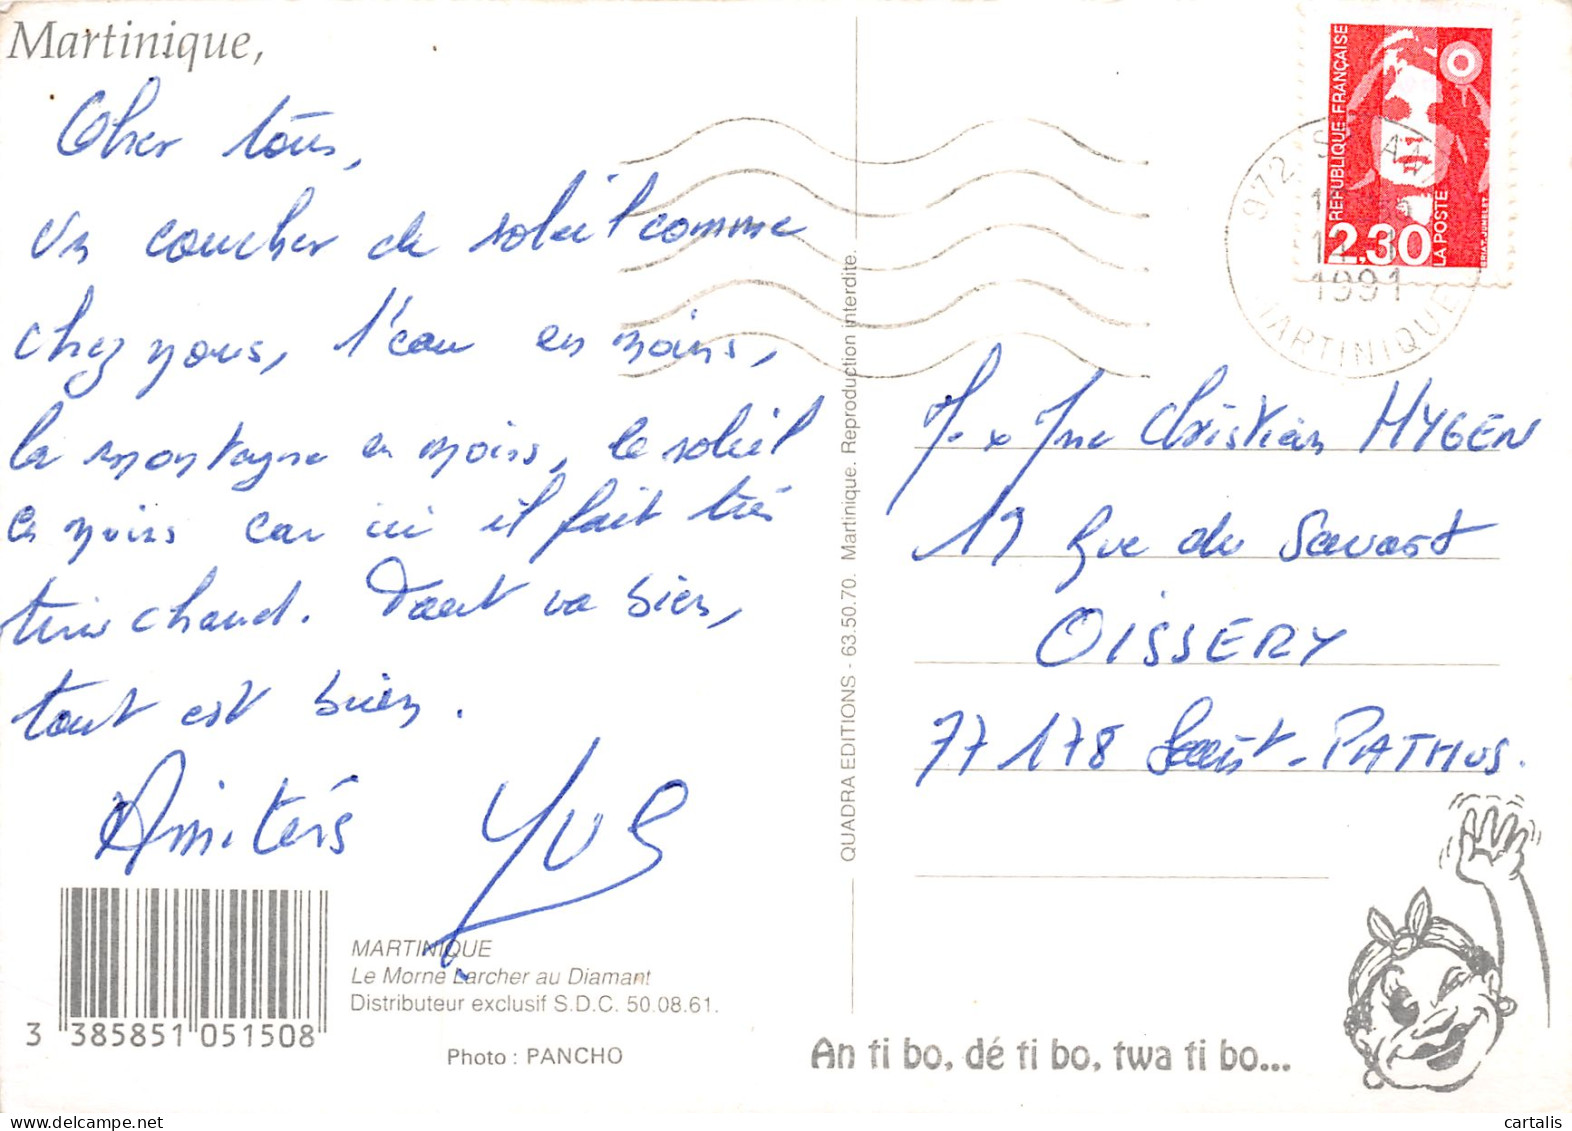 Martinique,
Cher tous,
Un coucher de soleil comme
chez vous, l'eau en moins,
la montagne en moins, le soleil
en moins car ici il fait très
très chaud. Tout va bien,
tout est bien.
Amitiés Yves
3 385851 051508
MARTINIQUE
Le Morne Larcher au Diamant
Distributeur exclusif S.D.C. 50.08.61.
Photo : PANCHO
QUADRA EDITIONS - 63.50.70. Martinique. Reproduction interdite.
RÉPUBLIQUE FRANÇAISE
2,30
LA POSTE
BRIAT-JUMELET
972
1991
MARTINIQUE
M. & Mme Christian HYGEN
19 Rue du Savart
OISSERY
77178 Saint-PATHUS.
An ti bo, dé ti bo, twa ti bo...
cartalis